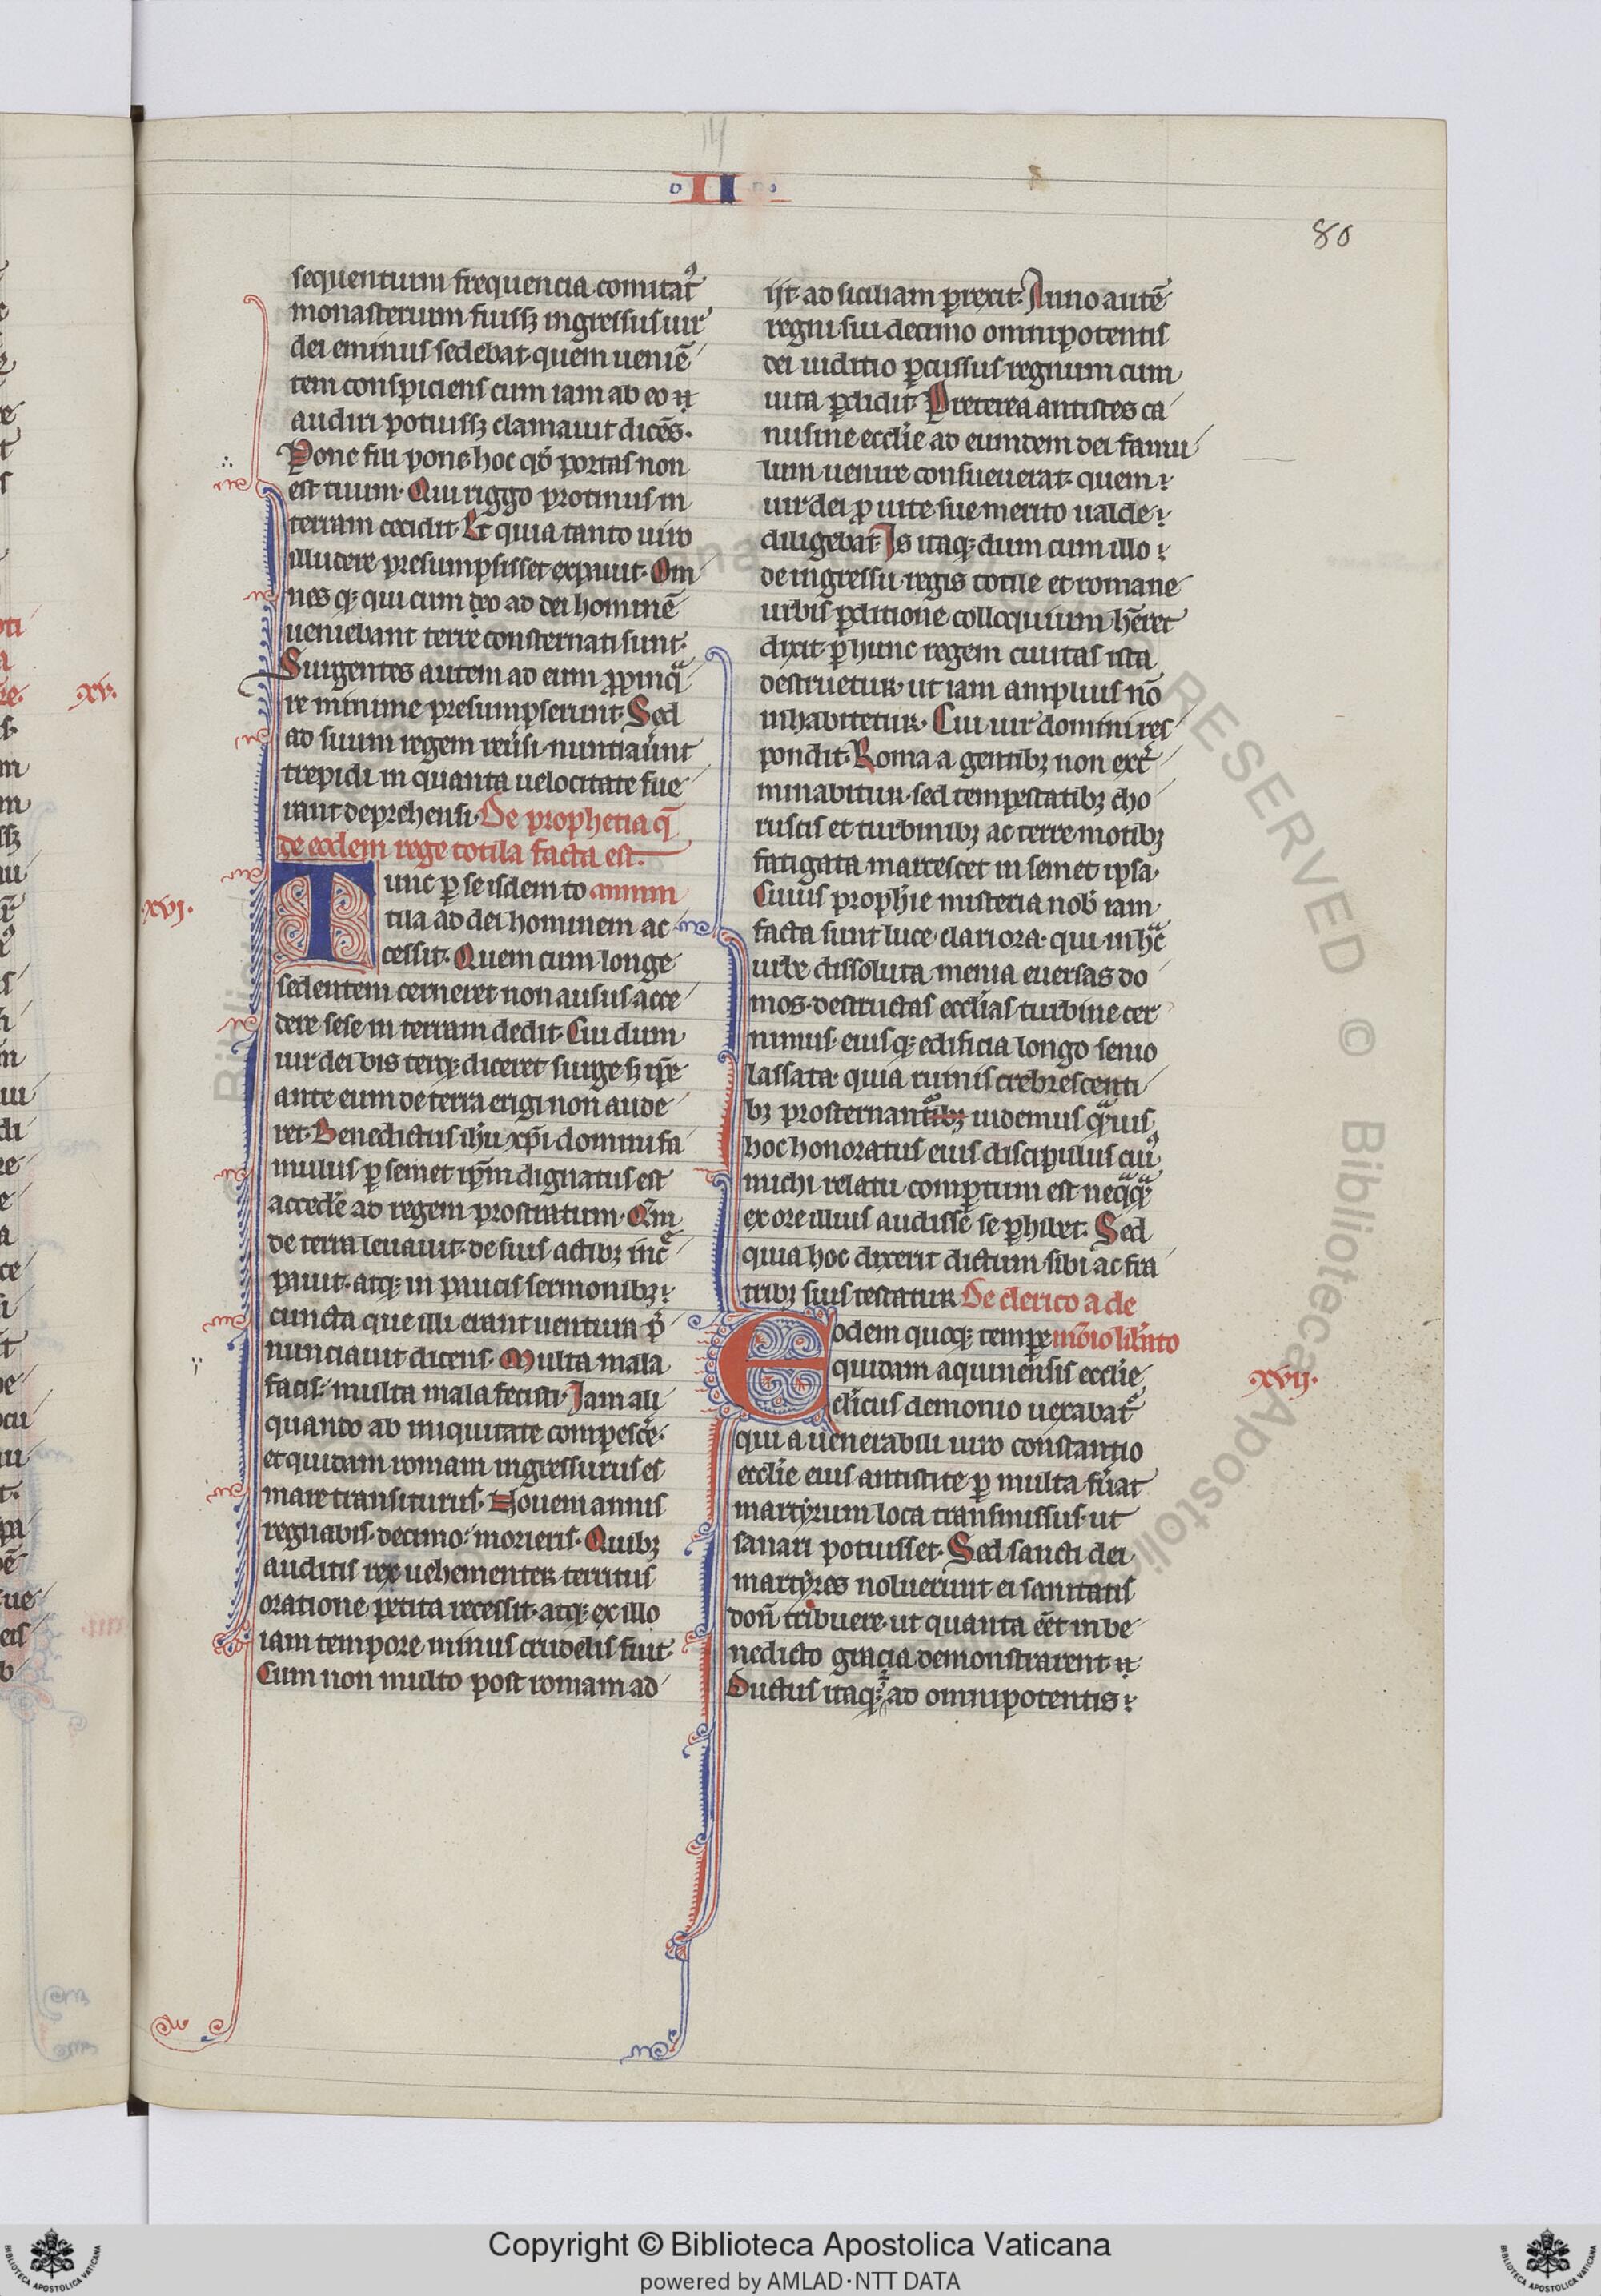 II
80
sequentium frequencia comitatꝰ
monasterium fuissꝫ ingressus uir
dei eminus sedebat. quem ueniē
tem conspiciens cum iam ab eo
audiri potuissꝫ clamauit dicēs.
Pone fili pone hoc qđ portas non
est tuum. Qui riggo protinus in
terram cecidit. Et quia tanto uiro
illudere presumpsisset expauit. Om
nes qꝫ qui cum eo ad dei hominē
ueniebant terre consternati sunt.
Surgentes autem ad eum ꝓpinqͣ
re minime presumpserunt. Sed
ad suum regem reũsi nuntiaũnt
trepidi in quanta uelocitate fue
rant deprehensi. De prophetia q̄
de eodem rege totila facta est.
xv.
xvi.
Tunc ꝑ se isdem to annum
tila ad dei hominem ac
cessit. Quem cum longe
sedentem cerneret non ausus acce
dere sese in terram dedit. Cui dum
uir dei bis terqꝫ diceret surge sꝫ ip̄e
ante eum de terra erigi non aude
ret. Benedictus ih̄u xp̄i domini fa
mulus ꝑ semet ip̄m dignatus est
accedẽ ad regem prostratum. Qm̄
de terra leuauit. de suis actibꝫ inc̃
pauit. atqꝫ in paucis sermonibꝫ
cuncta que illi erant uentura p̃
nunciauit dicens. Multa mala
facis. multa mala fecisti. Jam ali
quando ab iniquitate compescẽ.
et quidam romam ingressurus es
mare transiturus. Nouem annis
regnabis. decimo morieris. Quibꝫ
auditis rex uehementer territus
oratione petita recessit. atqꝫ ex illo
iam tempore minus crudelis fuit.
Cum non multo post romam ad
ijt. ad siciliam ꝑrexit. Anno autē
regni sui decimo omnipotentis
dei iuditio ꝑcussus regnum cum
uita ꝑdidit. Preterea antistes ca
nusine ecclīe ad eumdem dei famu
lum uenire consueuerat. quem
uir dei ꝓ uite sue merito ualde
diligebat. Is itaqꝫ dum cum illo
de ingressu regis totile et romane
urbis ꝑditione colloquium hēret
dixit. ꝑ hunc regem ciuitas ista
destruetur. ut iam amplius nō
inhabitetur. Cui uir domini res
pondit. Roma a gentibꝫ non ext̃
minabitur. sed tempestatibꝫ cho
ruscis et turbinibꝫ ac terre motibꝫ
fatigata marcescet in semet ipsa.
Cuius prophīe misteria nob̃ iam
facta sunt luce clariora. qui in hͣc
urbe dissoluta menia euersas do
mos. destructas ecclīas turbine cer
nimus. eius qꝫ edificia longo senio
lassata. quia ruinis crebrescenti
bꝫ prosternantibꝫ uidemus qͣuis
hoc honoratus eius discipulus cuiꝰ
michi relatu comꝑtum est neqͣqͣꝫ
ex ore illius audisse se ꝑhibet. Sed
quia hoc dixerit dictum sibi ac fra
tribꝫ suis testatur De clerico a de
Eodem quoqꝫ tempe mōio lib̃ato
quidam aquinensis ecclīe
xvij.
cl̃icus demonio uexabatꝰ
qui a uenerabili uiro constantio
ecclīe eius antistite ꝑ multa fũat
martyrum loca transmissus. ut
sanari potuisset. Sed sancti dei
martyres noluerunt ei sanitatis
donū tribuere. ut quanta eēt in be
nedicto gracia demonstrarent
Ductus itaqꝫ ad omnipotentis
Copyright © Biblioteca Apostolica Vaticana
powered by AMLAD·NTT DATA